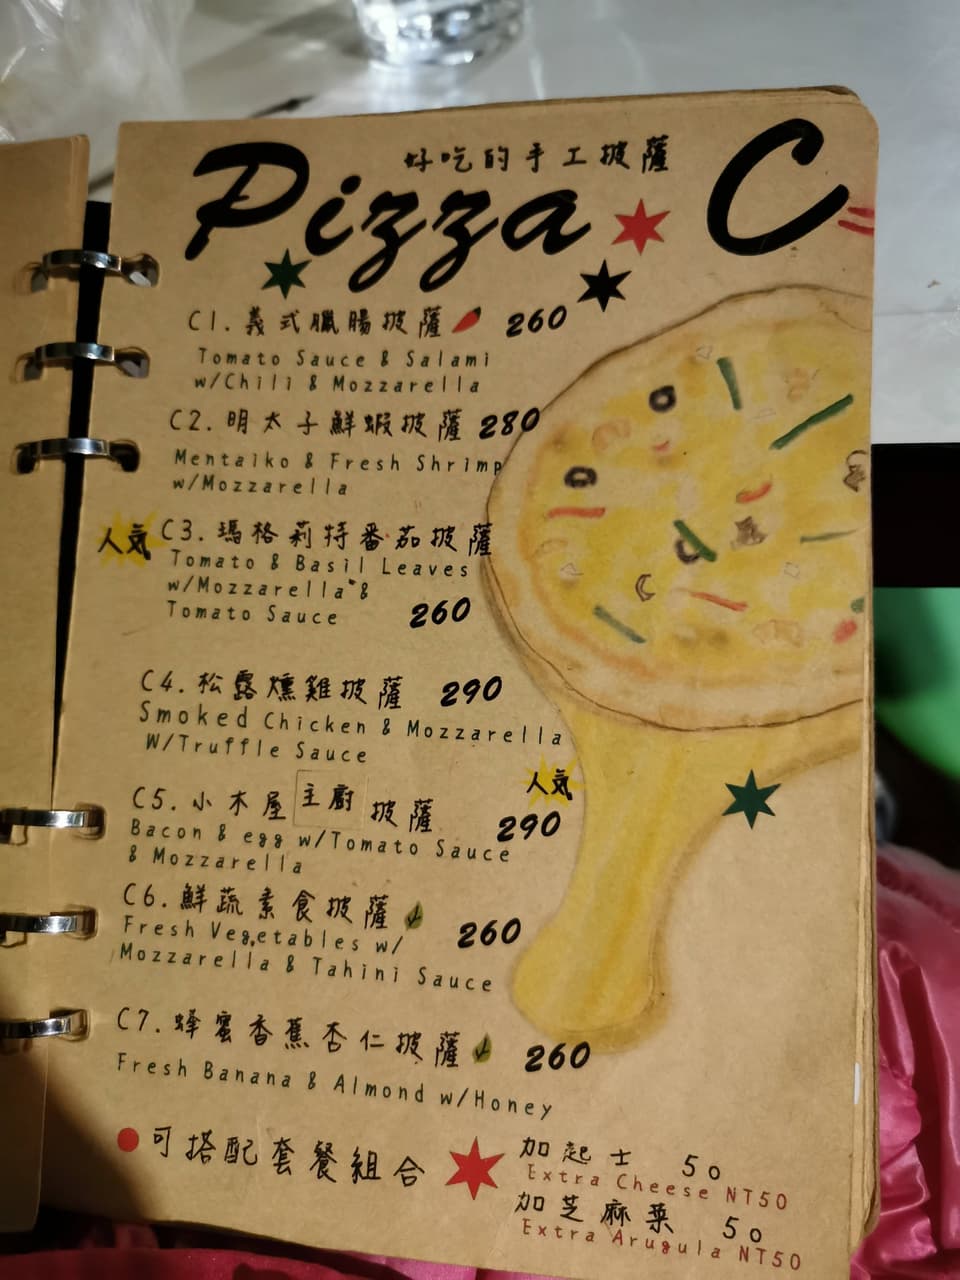 好吃的手工披薩
Pizza C
C1.義式臘腸披薩 260
Tomato Sauce & Salami
w/Chili & Mozzarella
C2.明太子鮮蝦披薩 280
Mentaiko & Fresh Shrimp
w/Mozzarella
人気 C3.瑪格莉特番茄披薩
Tomato & Basil Leaves
w/Mozzarella &
Tomato Sauce 260
C4.松露燻雞披薩 290
Smoked Chicken & Mozzarella
W/Truffle Sauce
人気
C5.小木屋主廚披薩 290
Bacon & egg w/Tomato Sauce
& Mozzarella
C6.鮮蔬素食披薩 260
Fresh Vegetables w/
Mozzarella & Tahini Sauce
C7.蜂蜜香蕉杏仁披薩 260
Fresh Banana & Almond w/Honey
可搭配套餐組合
加起士 50
Extra Cheese NT50
加芝麻菜 50
Extra Arugula NT50